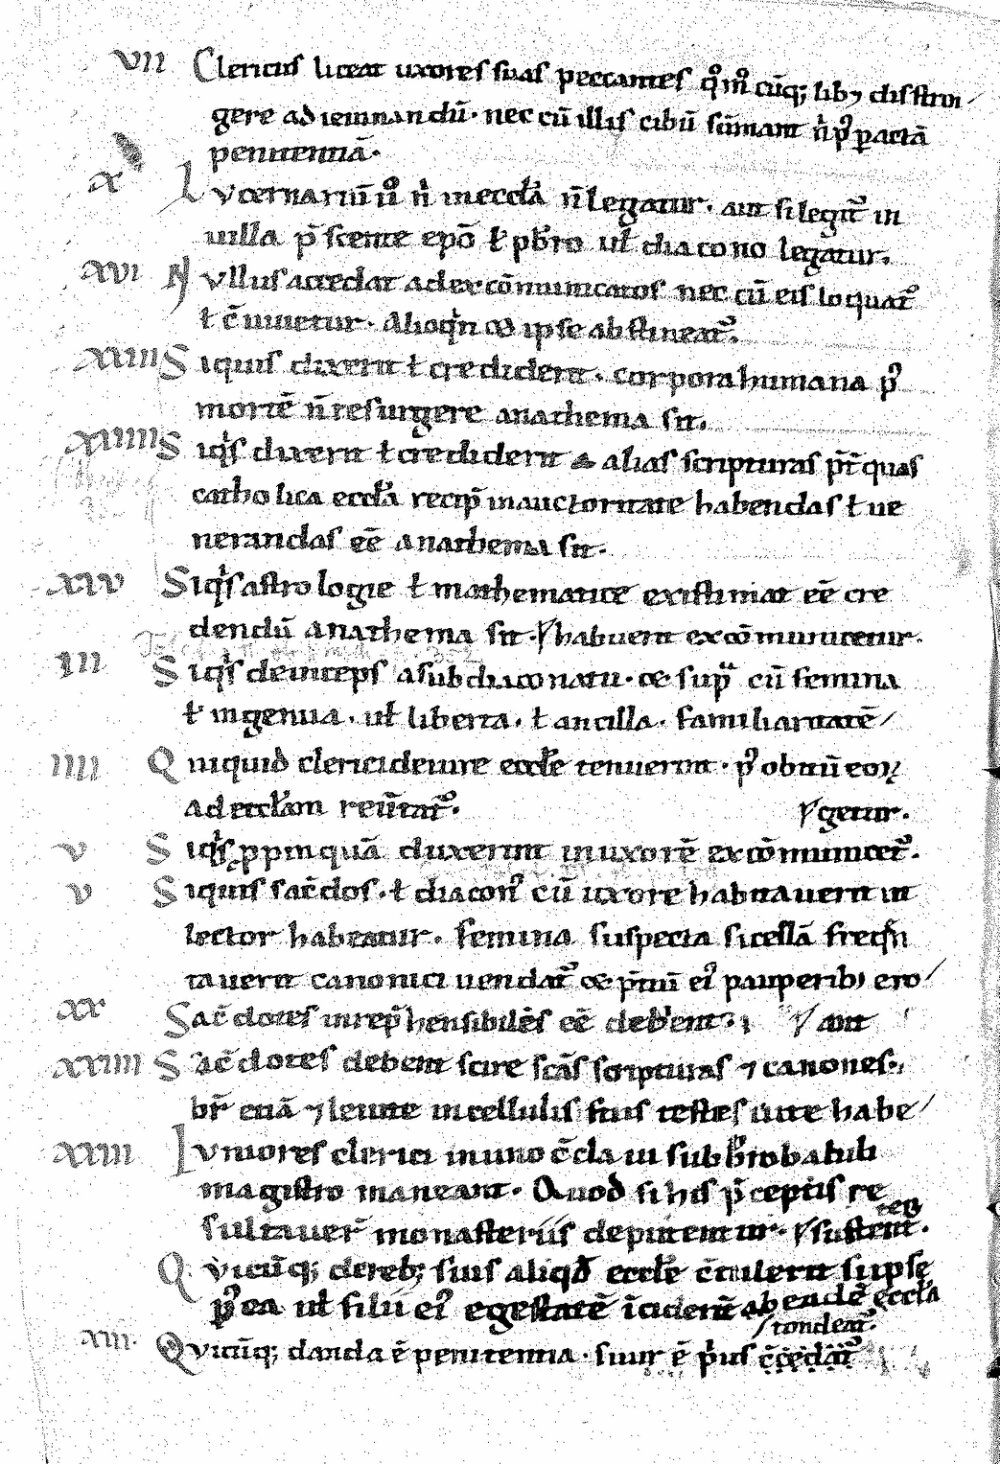 vii Clericus liceat uxores suas peccantes q̊m̊ cūq; lib; distrin/
gere ad ieiunandū. nec cū illis cibū sūmant n̄ p̛ peractā
penitentiā.
x Lucernariū ů n̄ in eccl̄a n̄ legatur. aut si legit᷑ in
uilla p̄sente ep̄o ł pb̄ro uł diacono legatur.
xvi Nullus accedat ad excōmunicatos nec cū eis loquat᷑
ł c̄uiuetur. Alioqin & ipse abstineat᷑.
xxiii Siquis dixerit ł crediderit. corpora humana p̛
mortē n̄ resurgere anathema sit.
xiiiii Siqs dixerit ł crediderit alias scripturas p̄t quas
catholica eccl̄a recip̄ in auctoritate habendas ł ue
nerandas eē anathema sit.
xiv Siqs astrologie ł mathematice existimat eē cre
dendū anathema sit. habuerit excōmunicetur.
iii Siqs deinceps a subdiaconatu. & sup̄ cū femina
ł ingenua. uł liberta. ł ancilla. familiaritatē/
iiii Quiquid clerici de iure eccłe tenuerint. p̛ obitū eoꝝ
ad eccłam reūtat᷑. getur.
v Siqs ppinquā duxerint in uxorē excōmunicet᷑.
v Siquis sac̄dos. ł diacon̛ cū uxore habitauerit in
lector habeatur. femina suspecta si cellā freqn
tauerit canonici uendat᷑ & p̄tiū ei̛ pauperib; ero/
xx Sac̄dotes inrep̄hensibiles eē debent. aut
xxiiii Sac̄dotes debent scire sc̄as scripturas ⁊ canones.
br̄ etiā ⁊ leuite in cellulis suis testes uite habe/
xxiii Iuniores clerici in uno c̄claui sub p̄robabili
magistro maneant. Quod si his p̄ceptis re
sultauer̄ monasteriis deputentur. sustent.
Quicūq; de reb; suis aliqd eccłe c̄tulerit si ipse
p̛ ea uł filii ei̛ egestatē īciderit ab eadē eccła
tondeat᷑.
xiii. Quicūq; danda ē penitentia. siuir ē p̄us